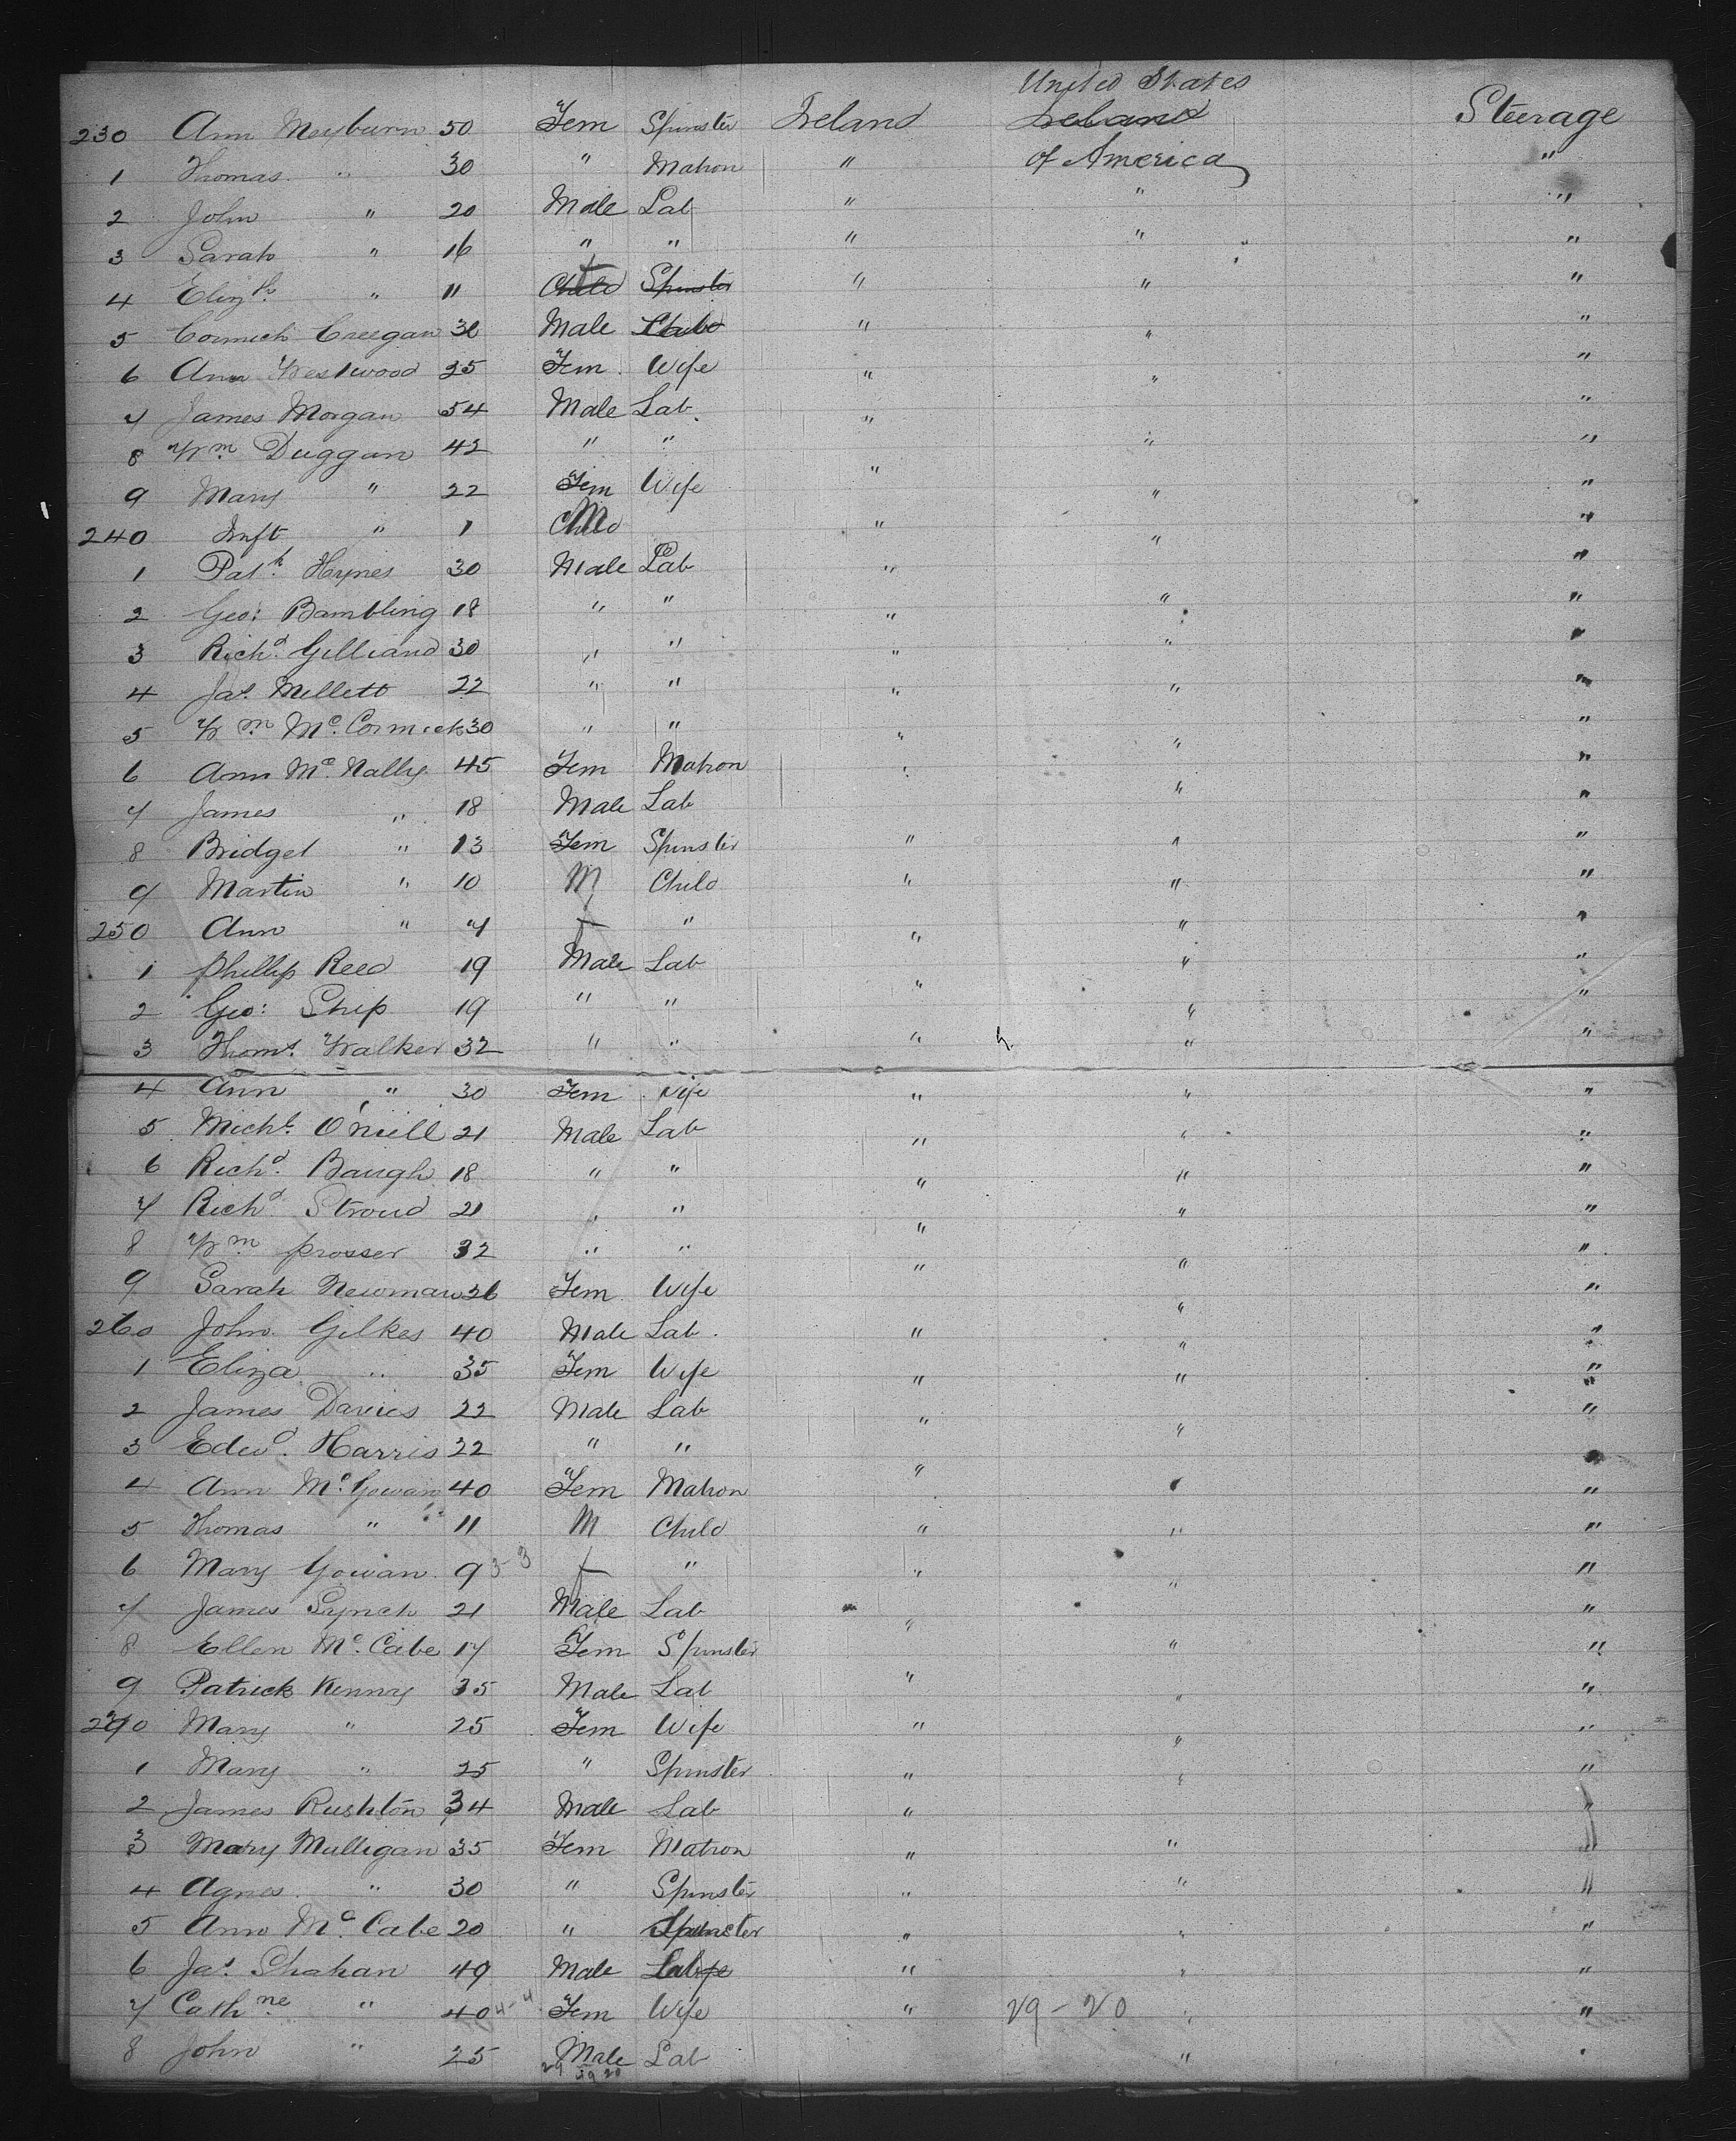 United States
230 Ann Meyburn 50 Fem Spinster Ireland Ireland Steerage
1 Thomas " 30 " Matron " of America "
2 John " 20 Male Lab " " "
3 Sarah " 16 " " " " "
4 Elizth " 11 Child f Spinster " " "
5 Cormick Creegan 30 Male " " "
6 Ann Westwood 25 Fem Wife " " "
7 James Morgan 54 Male Lab " "
8 Wm Duggan 42 " " " "
9 Mary " 22 Fem Wife " " "
240 Inft " 1 Child M " " "
1 Patk Hynes 30 Male Lab " "
2 Geo: Bambling 18 " " " " "
3 Richd Gilliand 30 " " " " "
4 Jas Mellett 22 " " " " "
5 Wm McCormick 30 " " " " "
6 Ann McNally 45 Fem Matron " " "
7 James " 18 Male Lab " "
8 Bridget " 13 Fem Spinster " " "
9 Martin " 10 M Child " " "
250 Ann " 7 f " " " "
1 Phillip Reed 19 Male Lab " " "
2 Geo: Ship 19 " " " " "
3 Thoms Walker 32 " " " " "
4 Ann " 30 Fem Wife " " "
5 Michl O'Niell 21 Male Lab " " "
6 Richd Baugh 18 " " " " "
7 Richd Stroud 21 " " " " "
8 Wm Prosser 32 " " " " "
9 Sarah Newman 26 Fem Wife " "
260 John Gilkes 40 Male Lab " " "
1 Eliza " 35 Fem Wife " " "
2 James Davies 22 Male Lab " " "
3 Edwd Harris 22 " " " "
4 Ann McGowan 40 Fem Matron " "
5 Thomas " 11 M Child " " "
6 Mary Gowan 9 3-3 f " " " "
7 James Lynch 21 Male Lab " "
8 Ellen McCabe 17 Fem Spinster " "
9 Patrick Kenny 35 Male Lab " " "
270 Mary " 25 Fem Wife " " "
1 Mary " 25 " Spinster " " "
2 James Rushton 34 Male Lab " "
3 Mary Mulligan 35 Fem Matron " " "
4 Agnes " 30 " Spinster " " "
5 Ann McCabe 20 " Spinster " " "
6 Jas Shahan 49 Male Lab " " "
7 Cathne " 40 4-4 Fem Wife " 29-20 " "
8 John " 25 Male Lab " "
29 20